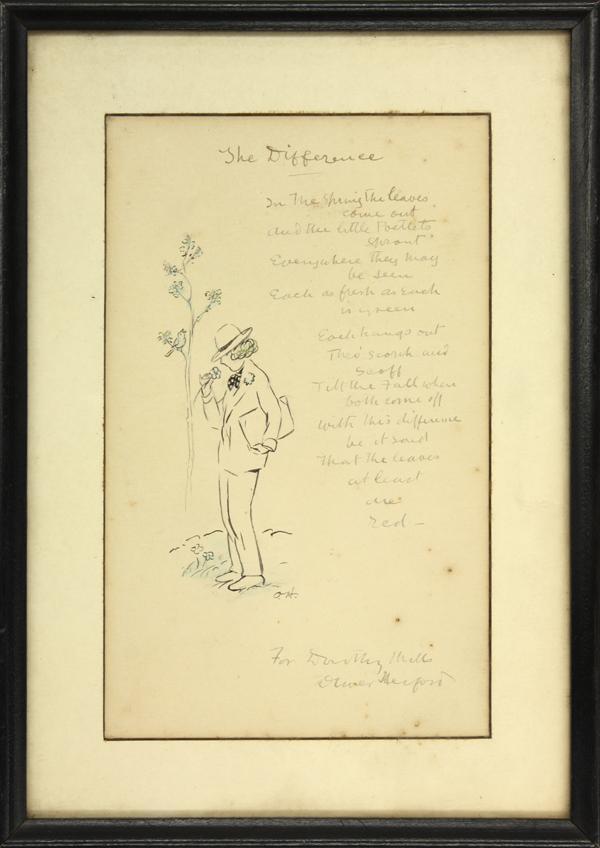 The Difference
In The Spring The leaves
come out
And the little Poetlets
sprout
Everywhere they may
be seen
Each as fresh as each
is green
Each hangs out
Tho' scorch and
scoff
Till the Fall when
both come off
With this difference
be it said
That the leaves
at least
are
red –
O.H.
For Dorothy Mills
Oliver Herford